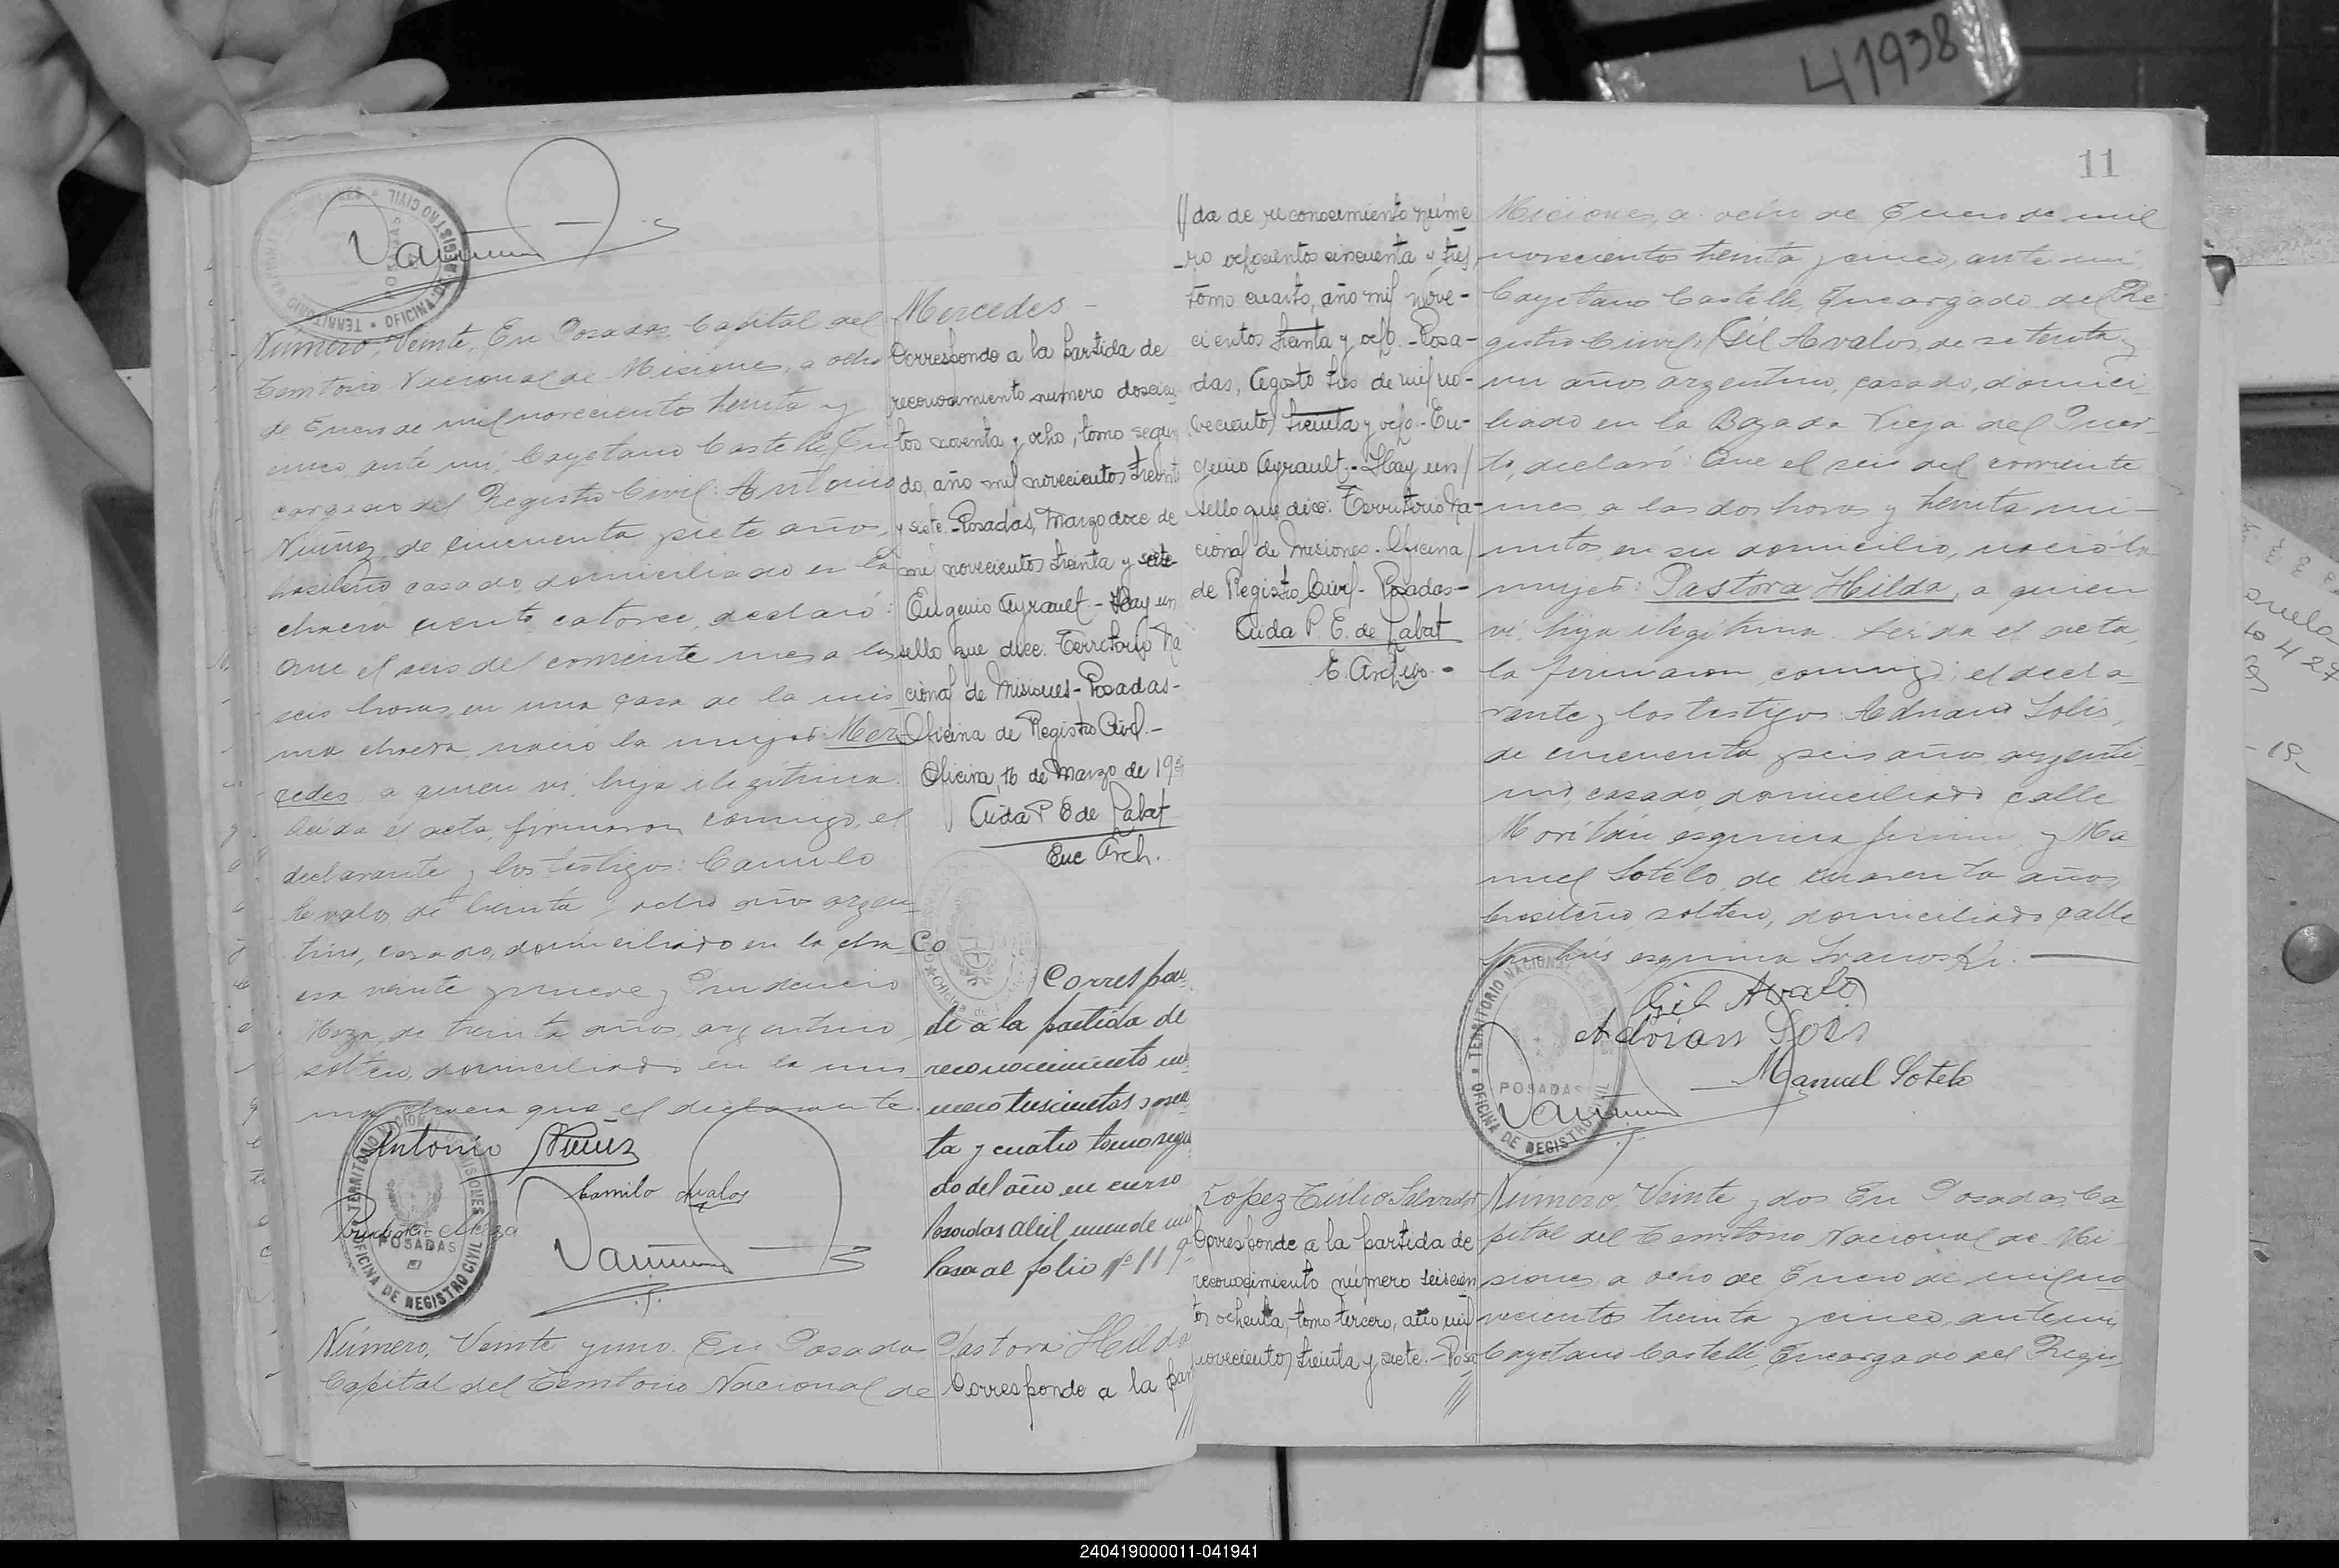 Número, Veinte, En Posadas, Capital del
Territorio Nacional de Misiones, a ocho
de Enero de mil novecientos treinta y
cinco, ante mi, Cayetano Castelli, En
cargado del Registro Civil: Antonio
Nuñez, de cincuenta y siete años,
brasileño casado, domiciliado en la
chacra ciento catorce, declaró:
Que el seis del corriente mes a las
seis horas, en una casa de la mis
ma chacra, nació la mujer: Mer-
cedes, a quien vi, hija ilegítima.
Leida el acta, firmaron conmigo, el
declarante y los testigos: Camilo
Avalos, de treinta y ocho años argen-
tino, casado, domiciliado en la cha
cra veinte y nueve y Prudencio
Meza, de treinta años, argentino,
soltero, domiciliado en la mis
ma chacra que el declarante.
Antonio Nuñez
Camilo Avalos
Prudencio Meza
TERRITORIO NACIONAL DE MISIONES
OFICINA DE REGISTRO CIVIL
POSADAS
Número, Veinte y uno. En Posadas
Capital del Territorio Nacional de
Mercedes.-
Corresponde a la partida de
reconocimiento numero doscien
tos noventa y ocho, tomo segun
do, año mil novecientos treinta
y siete.-Posadas, Marzo doce de
mil novecientos treinta y siete-
Eugenio Ayrault.- Hay un
sello que dice: Territorio Na
cional de Misiones- Posadas-
Oficina de Registro Civil.-
Oficina, 16 de Marzo de 19
Cuida P E de Labat
Enc Arch.
Co
Correspon
de a la partida de
reconocimiento nú
mero trescientos
ta y cuatro tomo segun
do del año en curso
Posadas abril nueve de mil
Pasa al folio Nº 119
Pastora Hilda
Corresponde a la par
//
11
//da de reconocimiento núme
ro ochocientos cincuenta y tres,
tomo cuarto, año mil nove-
cientos treinta y ocho.-Posa-
das, Agosto tres de mil no-
vecientos treinta y ocho.-Eu-
genio Ayrault.-Hay un/
sello que dice: Territorio Na-
cional de Misiones. Oficina/
de Registro Civil- Posadas-
Cuida P. E. de Labat
E. Archivo.-
López Túlio Salvador
Corresponde a la partida de
reconocimiento número seiscien
tos ochenta, tomo tercero, año mil
novecientos treinta y siete.-Posa
//
Misiones, a ocho de Enero de mil
novecientos treinta y cinco, ante mi,
Cayetano Castelli, Encargado del Re
gistro Civil: Gil Avalos, de setenta y
un años, argentino, casado, domici-
liado en la Bajada Vieja del Puer-
to, declaró: Que el seis del corriente
mes, a las dos horas y treinta mi-
nutos, en su domicilio, nació la
mujer: Pastora Hilda, a quien
vi, hija ilegítima. Leida el acta,
la firmaron conmigo: el decla-
rante y los testigos: Adrian Solis,
de cincuenta y seis años, argenti-
no, casado, domiciliado calle
esquina Junin, y Ma
nuel Sotelo, de cuarenta años,
brasileño, soltero, domiciliado calle
San Luis esquina
Gil Avalo
Adrian Solis
Manuel Sotelo
TERRITORIO NACIONAL DE MISIONES
OFICINA DE REGISTRO CIVIL
POSADAS
Número, Veinte y dos. En Posadas, Ca
pital del Territorio Nacional de Mi
siones, a ocho de Enero de mil no
vecientos treinta y cinco, ante mi,
Cayetano Castelli, Encargado del Regis
41938
240419000011-041941